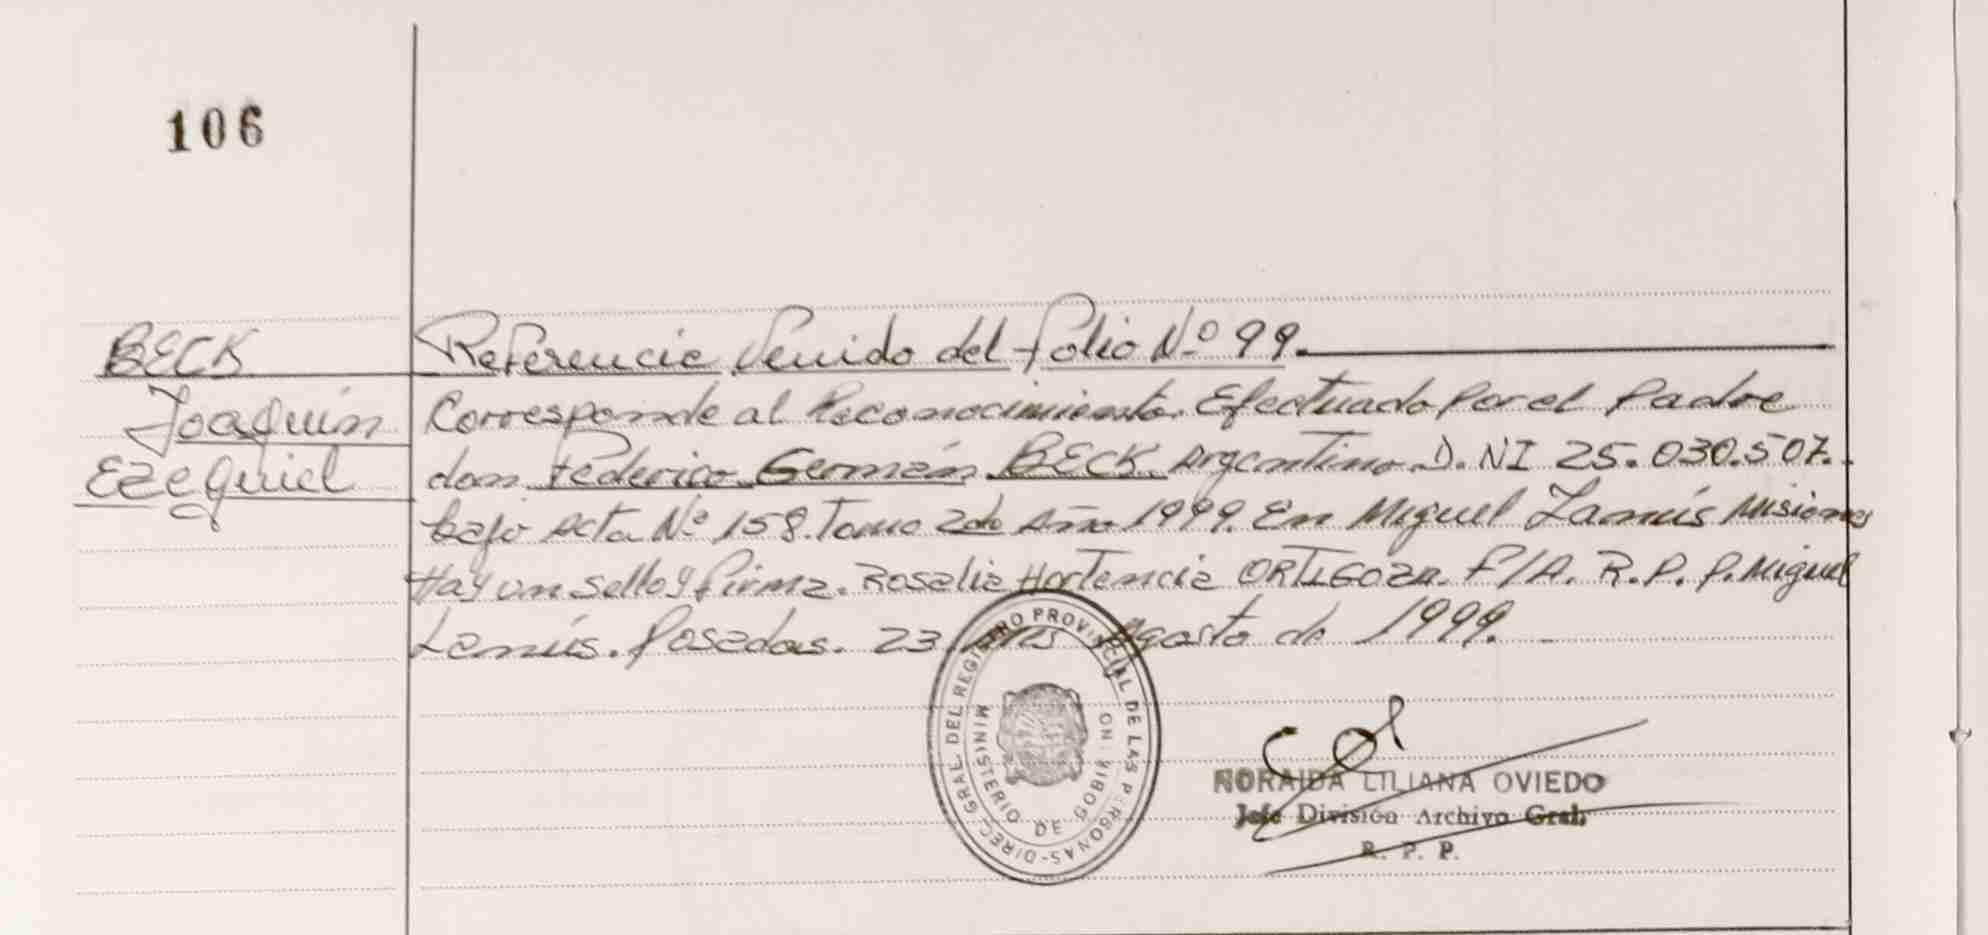 106
BECK
Joaquín
Ezequiel
Referencia Venido del folio Nº 99.
Corresponde al Reconocimiento. Efectuado Por el Padre
don Federico Germán BECK. Argentino D. NI 25.030.507.
bajo Acta Nº 158. Tomo 2do Año 1999. En Miguel Lanús Misiones
Hay un Sello y firma. Rosalia Hortencia ORTIGOZA. F/A. R.P.P. Miguel
Lanús. Posadas. 23 Agosto de 1999.
DIREC. GRAL. DEL REGISTRO PROVINCIAL DE LAS PERSONAS
MINISTERIO DE GOBIERNO
NORAIDA LILIANA OVIEDO
Jefe División Archivo Gral.
R. P. P.